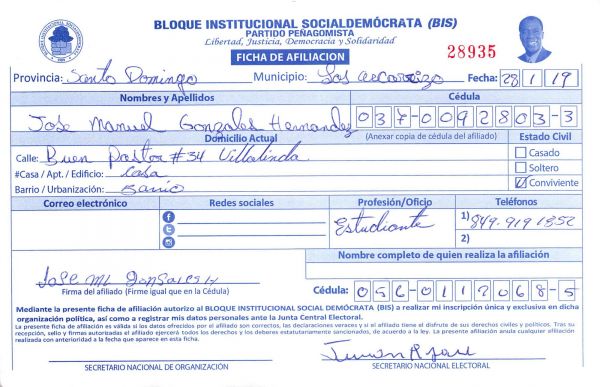 BLOQUE INSTITUCIONAL SOCIALDEMÓCRATA (BIS)
PARTIDO PEÑAGOMISTA
Libertad, Justicia, Democracia y Solidaridad
FICHA DE AFILIACION
28935
Provincia: Santo Domingo Municipio: Los Alcarrizo Fecha: 28 1 19
Nombres y Apellidos Cédula
Jose Manuel Gonzales Hernandez 037-0092803-3
Domicilio Actual (Anexar copia de cédula del afiliado) Estado Civil
Calle: Buen Pastor #34 Villalinda Casado
#Casa / Apt. / Edificio: casa Soltero
Barrio / Urbanización: Barrio Conviviente
Correo electrónico Redes sociales Profesión/Oficio Teléfonos
Estudiante 1) 849.919 1352
2)
Nombre completo de quien realiza la afiliación
Jose ML
Firma del afiliado (Firme igual que en la Cédula) Cédula: 056-0112068-5
Mediante la presente ficha de afiliación autorizo al BLOQUE INSTITUCIONAL SOCIAL DEMÓCRATA (BIS) a realizar mi inscripción única y exclusiva en dicha
organización política, así como a registrar mis datos personales ante la Junta Central Electoral.
La presente ficha de afiliación es válida si los datos ofrecidos por el afiliado son correctos, las declaraciones veraces y si el afiliado tiene el disfrute de sus derechos civiles y políticos. Tras su
recepción, sello y firmas autorizadas el afiliado ejercerá todos los derechos y los deberes estatutariamente sancionados, de acuerdo a la ley. La presente afiliación anula cualquier afiliación
realizada con anterioridad a la fecha que aparece en esta ficha.
SECRETARIO NACIONAL DE ORGANIZACIÓN SECRETARIO NACIONAL ELECTORAL